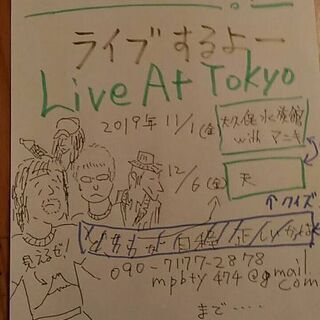 ライブするよー
Live At Tokyo
2019年 11/1(金)
大久保水族館
with マニキ
12/6(金)
天
クイズ
どちらが日程正しいかな
見えるぜ!
090-7177-2878
mpbty474@gmail
com
まで....